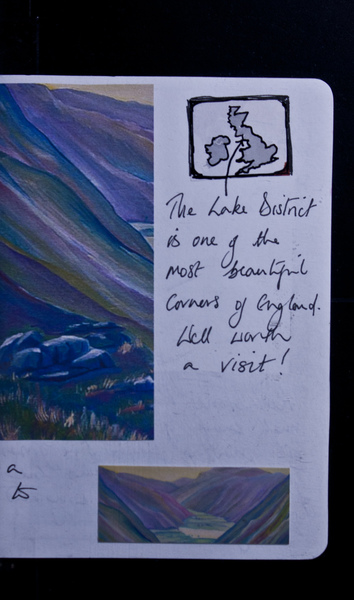 The Lake District
is one of the
most beautiful
corners of England.
Well worth
a visit!
a
to